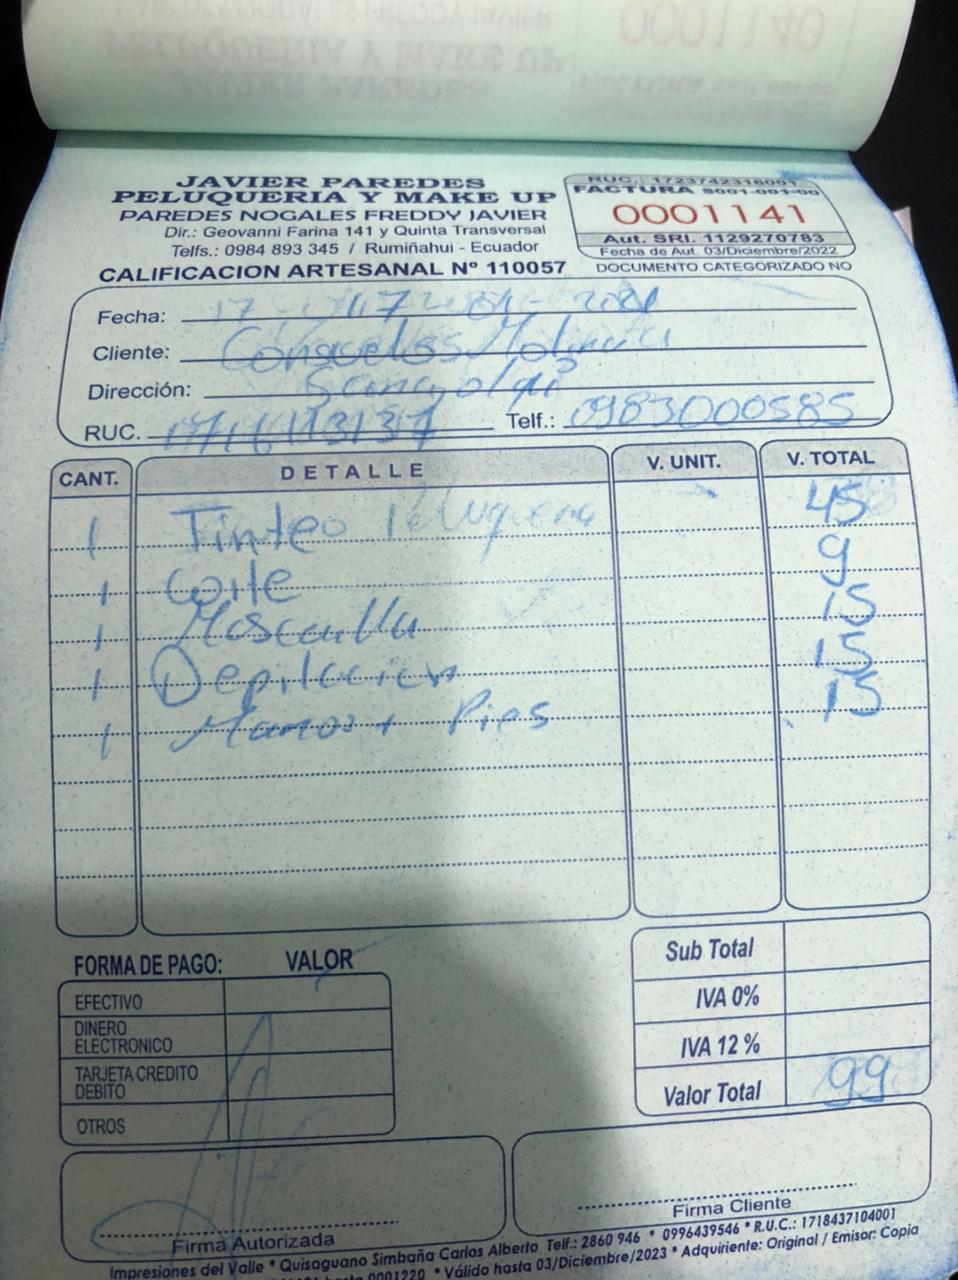 JAVIER PAREDES
PELUQUERIA Y MAKE UP
PAREDES NOGALES FREDDY JAVIER
Dir.: Geovanni Farina 141 y Quinta Transversal
Telfs.: 0984 893 345 / Rumiñahui - Ecuador
CALIFICACION ARTESANAL Nº 110057
RUC. 1723742316001
FACTURA S001-001-00
0001141
Aut. SRI. 1129270783
Fecha de Aut. 03/Diciembre/2022
DOCUMENTO CATEGORIZADO NO
Fecha: 17
Cliente: Molina
Dirección: Sangolqui
RUC.
Telf.: 0983000585
CANT. DETALLE V. UNIT. V. TOTAL
1 Tinteo Peluqueria 45
1 Corte 9
1 Mascarilla 15
1 Depilacion 15
1 Manos + Pies 15
FORMA DE PAGO: VALOR
EFECTIVO
DINERO ELECTRONICO
TARJETA CREDITO DEBITO
OTROS
Sub Total
IVA 0%
IVA 12 %
Valor Total 99
Firma Autorizada
Firma Cliente
Impresiones del Valle * Quisaguano Simbaña Carlos Alberto Telf.: 2860 946 * 0996439546 * R.U.C.: 1718437104001
0001220 * Válido hasta 03/Diciembre/2023 * Adquiriente: Original / Emisor: Copia